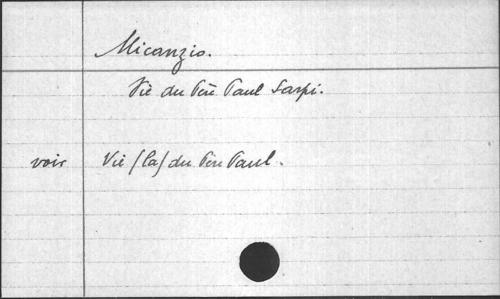 Micanzio.
Vie du Père Paul Sarpi.
voir Vie (la) du Père Paul.